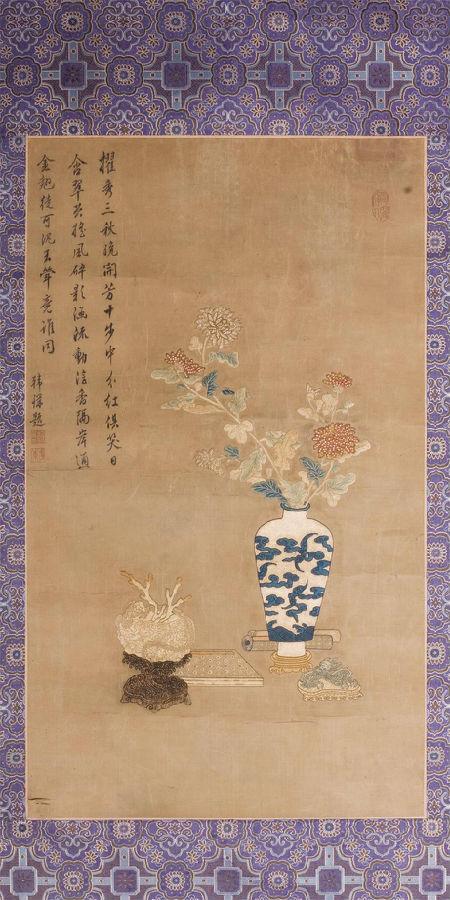 擢秀三秋晚開芳十步中分紅俱笑日
含翠共搖風碎影涵流動浮香隔岸通
金翹徒可泛玉斝竟誰同
題